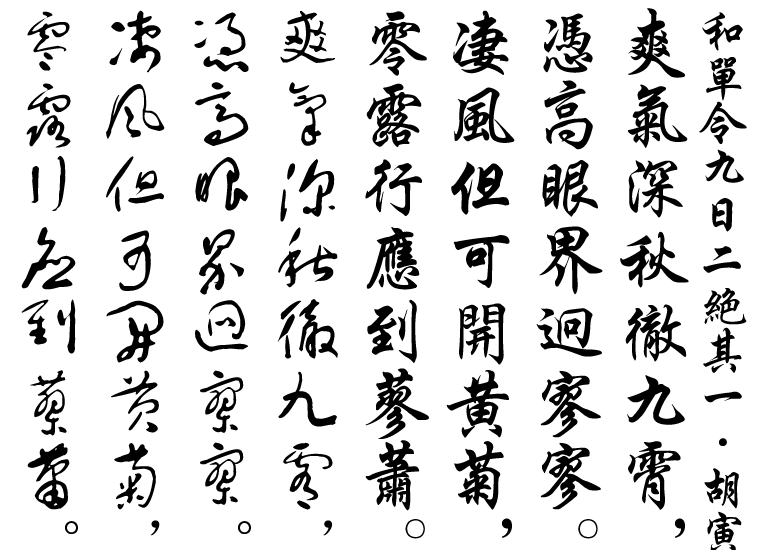 和單令九日二絕其一·胡寅
爽氣深秋徹九霄，
憑高眼界迥寥寥。
淒風但可開黃菊，
零露行應到蓼蕭。
爽氣深秋徹九霄，
憑高眼界迥寥寥。
淒風但可開黃菊，
零露行應到蓼蕭。